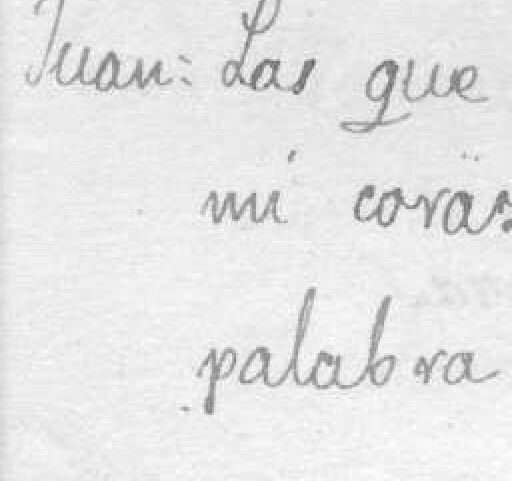 Juan: Las que
mi coräs
palabra